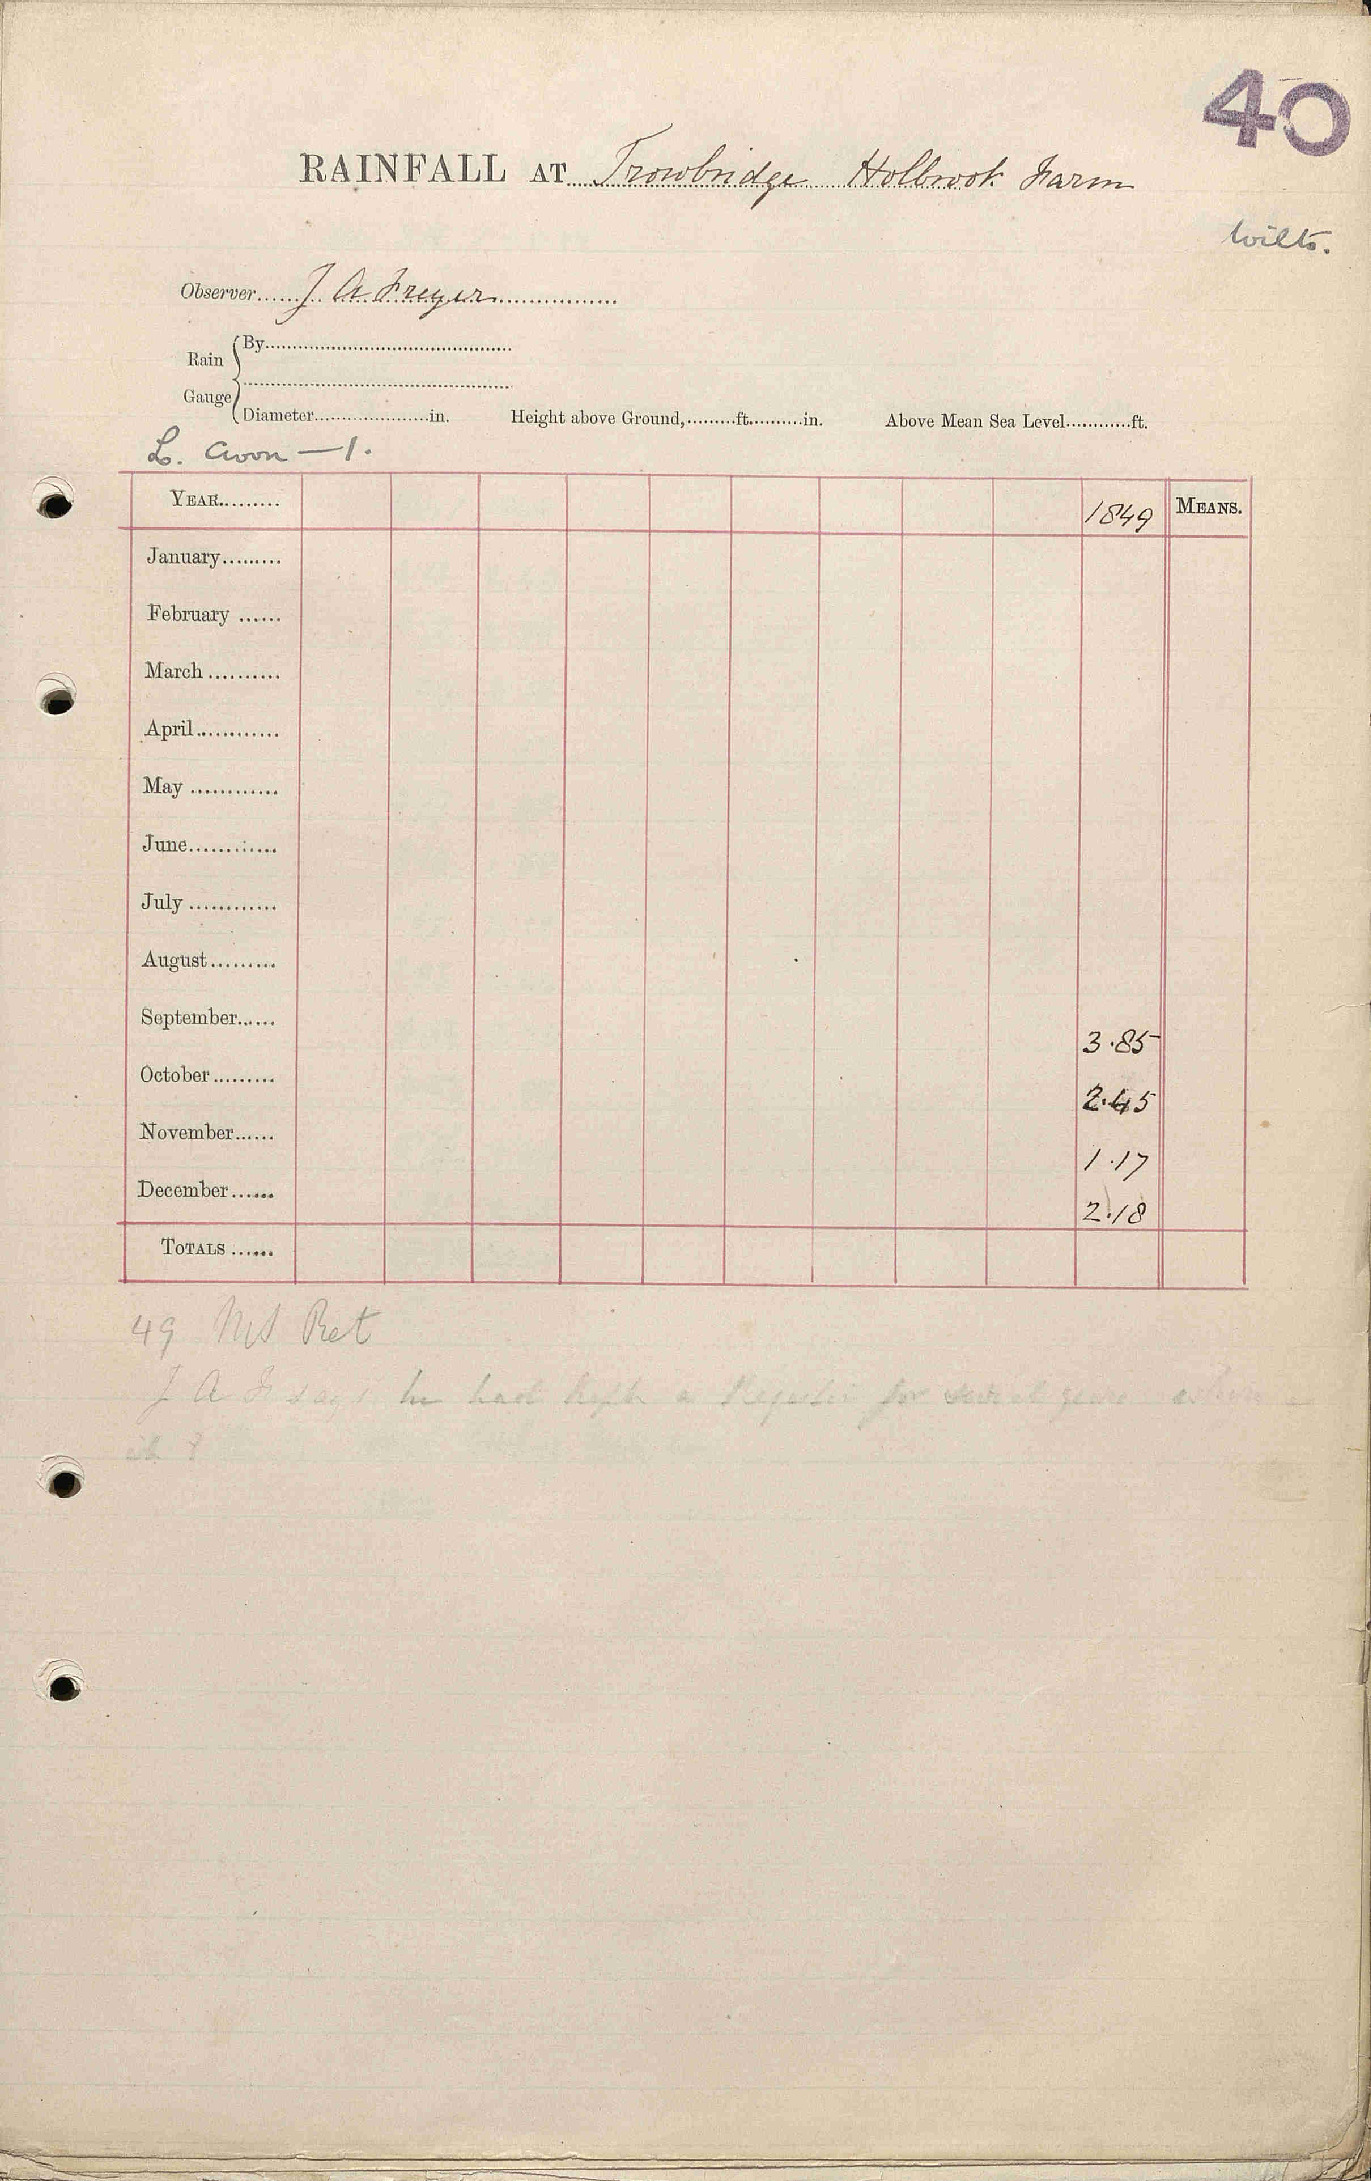 40
RAINFALL AT Trowbridge Holbrook Farm
Wilts.
Observer J A Freyer
Rain Gauge
By
Diameter in. Height above Ground, ft. in. Above Mean Sea Level ft.
L. Avon — 1.
YEAR 1849 MEANS.
January
February
March
April
May
June
July
August
September 3.85
October 2.45
November 1.17
December 2.18
TOTALS
49 MS Ret
J A F says he had kept a Register for several years where is
it?